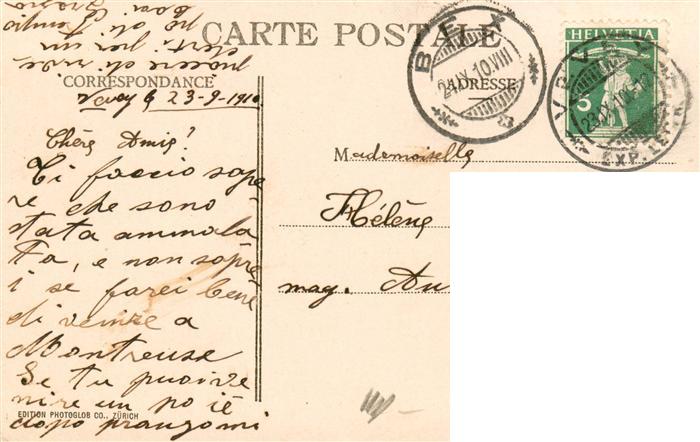 CARTE POSTALE
CORRESPONDANCE
ADRESSE
HELVETIA
5
BEX
24.IX.10.VIII
VEVEY
23.IX.10
EXP. LETTR.
Vevey 23-9-1910
Chère Amie?
Ti faccio sape
re che sono
stata ammala
ta, e non sapre
i se farei bene
di venire a
Montreuse
Se tu puoi ve
nire un po
dopo pranzo mi
Mademoiselle
Hélène
mag.
EDITION PHOTOGLOB CO., ZÜRICH